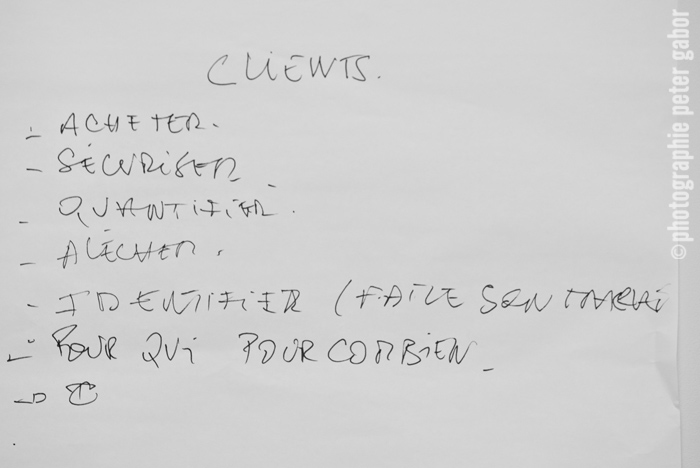 CLIENTS.
- ACHETER.
- SÉCURISER
- QUANTIFIER.
- ALÉCHER.
- IDENTIFIER (FAIRE SON
- POUR QUI POUR COMBIEN
©photographie peter gabor